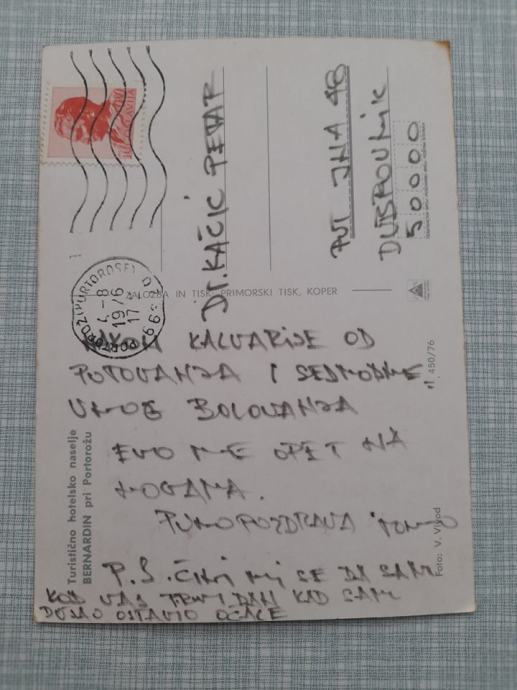 JUGOSLAVIJA
PORTOROŽ (PORTOROSE)
4-8
1976
17
DR. KAČIĆ PETAR
PUT JNA 48
DUBROVNIK
50000
ZALOŽBA IN TISK PRIMORSKI TISK, KOPER
NAKON KALVARIJE OD
PUTOVANJA I SEDMODNE
VNOG BOLOVANJA
EVO ME OPET NA
NOGAMA.
PUNO POZDRAVA
P.S. ČINI MI SE DA SAM
KOD VAS PRVI DAN KAD SAM
DOŠAO OSTAVIO OČALE
Turistično hotelsko naselje
BERNARDIN pri Portorožu
450/76
Foto: V.